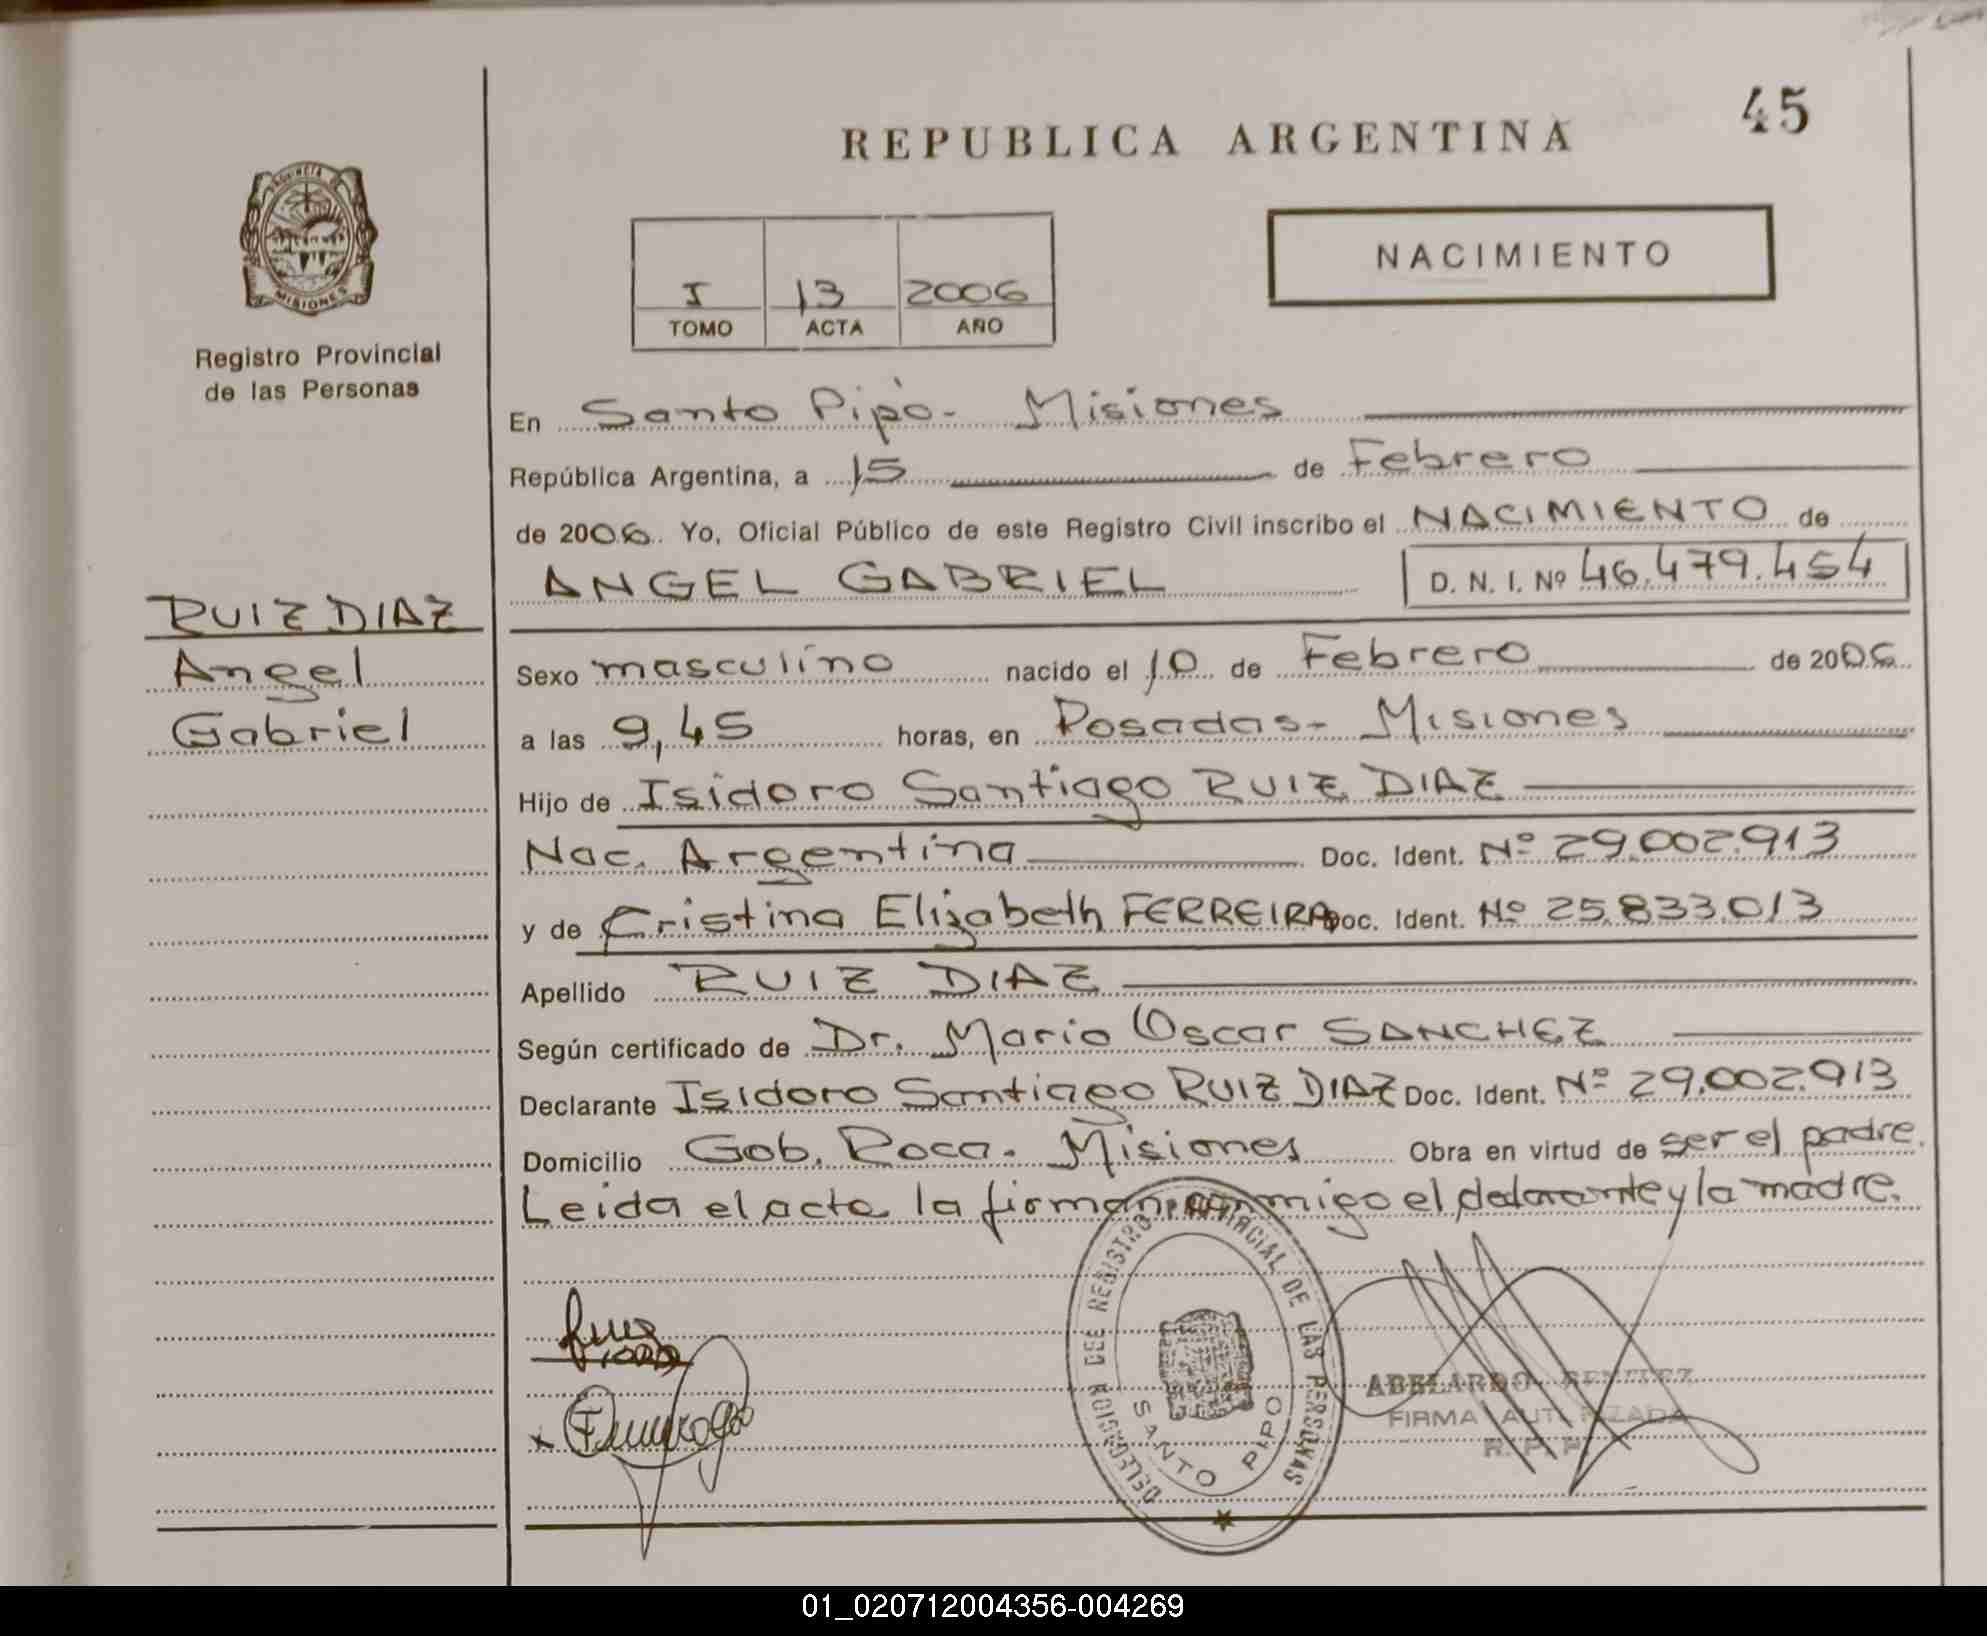 45
REPUBLICA ARGENTINA
NACIMIENTO
PROVINCIA DE
MISIONES
Registro Provincial
de las Personas
I 13 2006
TOMO ACTA AÑO
En Santo Pipó - Misiones
República Argentina, a 15 de Febrero
de 2006. Yo, Oficial Público de este Registro Civil inscribo el NACIMIENTO de
ANGEL GABRIEL D. N. I. Nº 46.479.454
RUIZ DIAZ
Angel
Gabriel
Sexo masculino nacido el 10 de Febrero de 2006
a las 9,45 horas, en Posadas - Misiones
Hijo de Isidoro Santiago RUIZ DIAZ
Nac. Argentina Doc. Ident. Nº 29.002.913
y de Cristina Elizabeth FERREIRA Doc. Ident. Nº 25.833.013
Apellido RUIZ DIAZ
Según certificado de Dr. Mario Oscar SANCHEZ
Declarante Isidoro Santiago RUIZ DIAZ Doc. Ident. Nº 29.002.913
Domicilio Gob. Roca - Misiones Obra en virtud de ser el padre.
Leida el acta la firman conmigo el declarante y la madre.
DELEGACION DEL REGISTRO PROVINCIAL DE LAS PERSONAS
SANTO PIPO
ABELARDO BENITEZ
FIRMA AUTORIZADA
R. P. P.
01_020712004356-004269